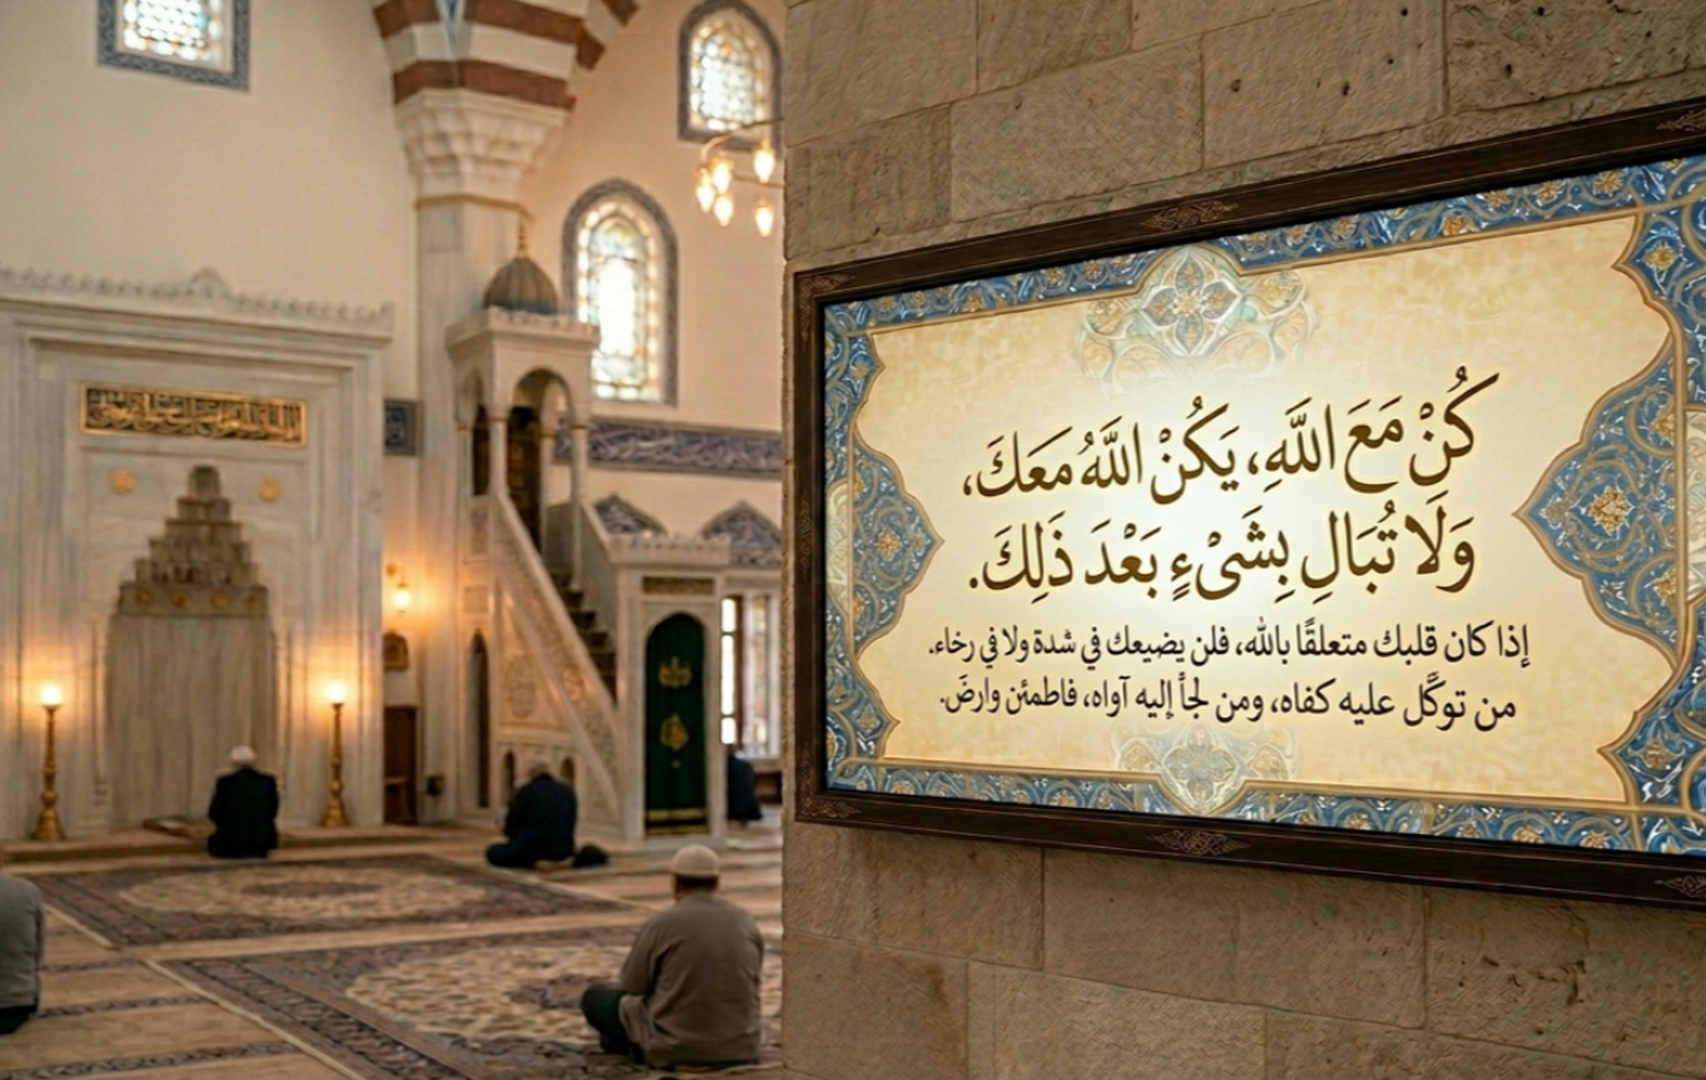 كُنْ مَعَ اللَّهِ، يَكُنْ اللَّهُ مَعَكَ،
وَلَا تُبَالِ بِشَيْءٍ بَعْدَ ذَلِكَ.
إذا كان قلبك متعلقًا بالله، فلن يضيعك في شدة ولا في رخاء.
من توكَّل عليه كفاه، ومن لجأ إليه آواه، فاطمئن وارضَ.